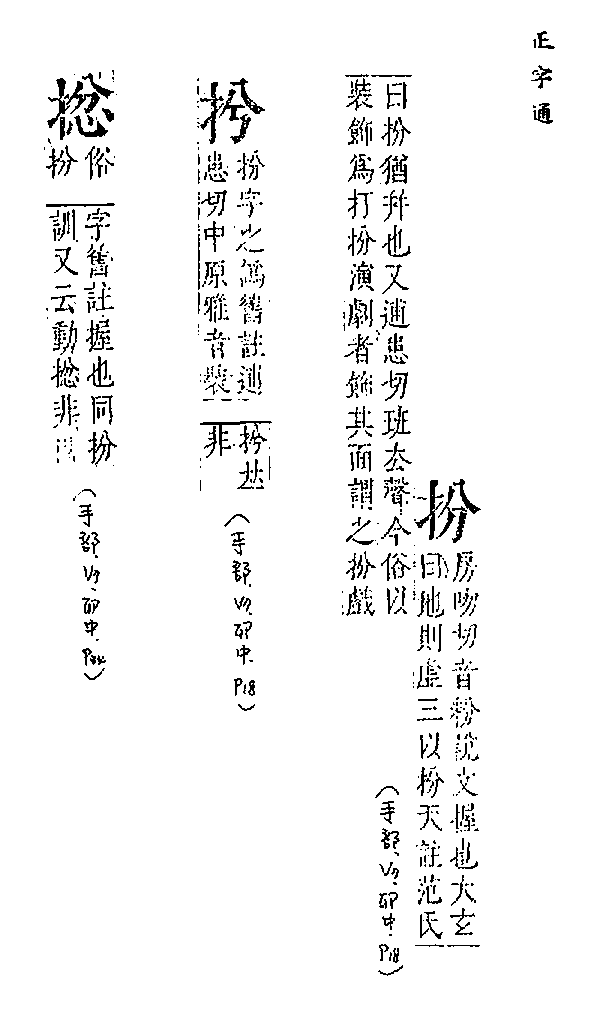 正字通
扮
房吻切音粉說文握也太玄
曰地則虛三以扮天註范氏
曰扮猶幷也又逋患切班去聲今俗以
裝飾爲打扮演劇者飾其面謂之扮戲
(手部、卯中、P18)
扮字之譌舊註逋
患切中原雅音裝
𠀤
非
(手部、卯中、P18)
俗
扮
字舊註握也同扮
訓又云動揔非
(手部、卯中、P34)